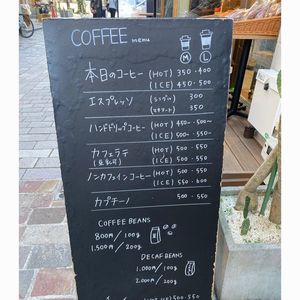 COFFEE MENU
M L
本日のコーヒー (HOT) 350・400
(ICE) 450・500
エスプレッソ (シングル) 300
350
ハンドドリップコーヒー (HOT) 450~・500~
(ICE) 500~・550~
カフェラテ (HOT) 500・550
(ICE) 500・550
ノンカフェインコーヒー (HOT) 500・550
(ICE) 550・600
カプチーノ 500・550
COFFEE BEANS
800円/100g
1,500円/200g
DECAF BEANS
1,000円/100g
2,000円/200g
(HOT) 500・550